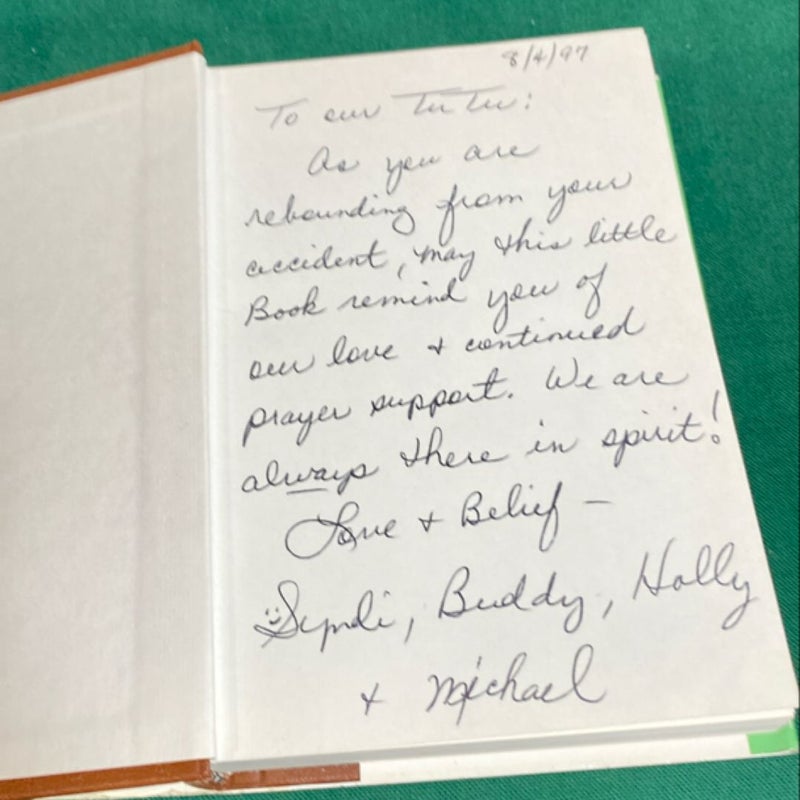 8/4/97
To our TuTu:
As you are
rebounding from your
accident, may this little
Book remind you of
our love + continued
prayer support. We are
always there in spirit!
Love + Belief —
Syndi, Buddy, Holly
+ Michael